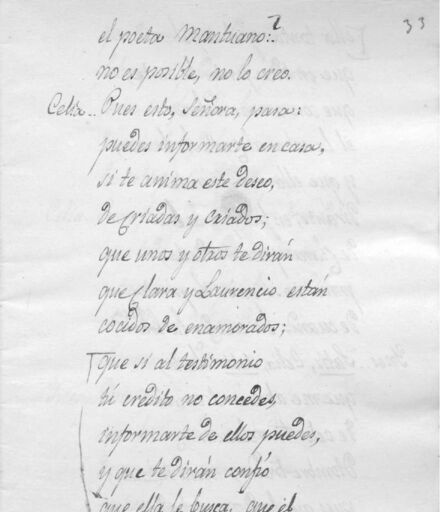 33
el poeta Mantuano:
no es posible, no lo creo.
Celia.. Pues esto, Señora, pasa:
puedes informarte en casa,
si te anima este deseo,
de criadas y criados;
que unos y otros te dirán
que Clara y Laurencio están
cocidos de enamorados;
que si al testimonio
tú credito no concedes,
informarte de ellos puedes,
y que te dirán confío
que ella le busca, que él